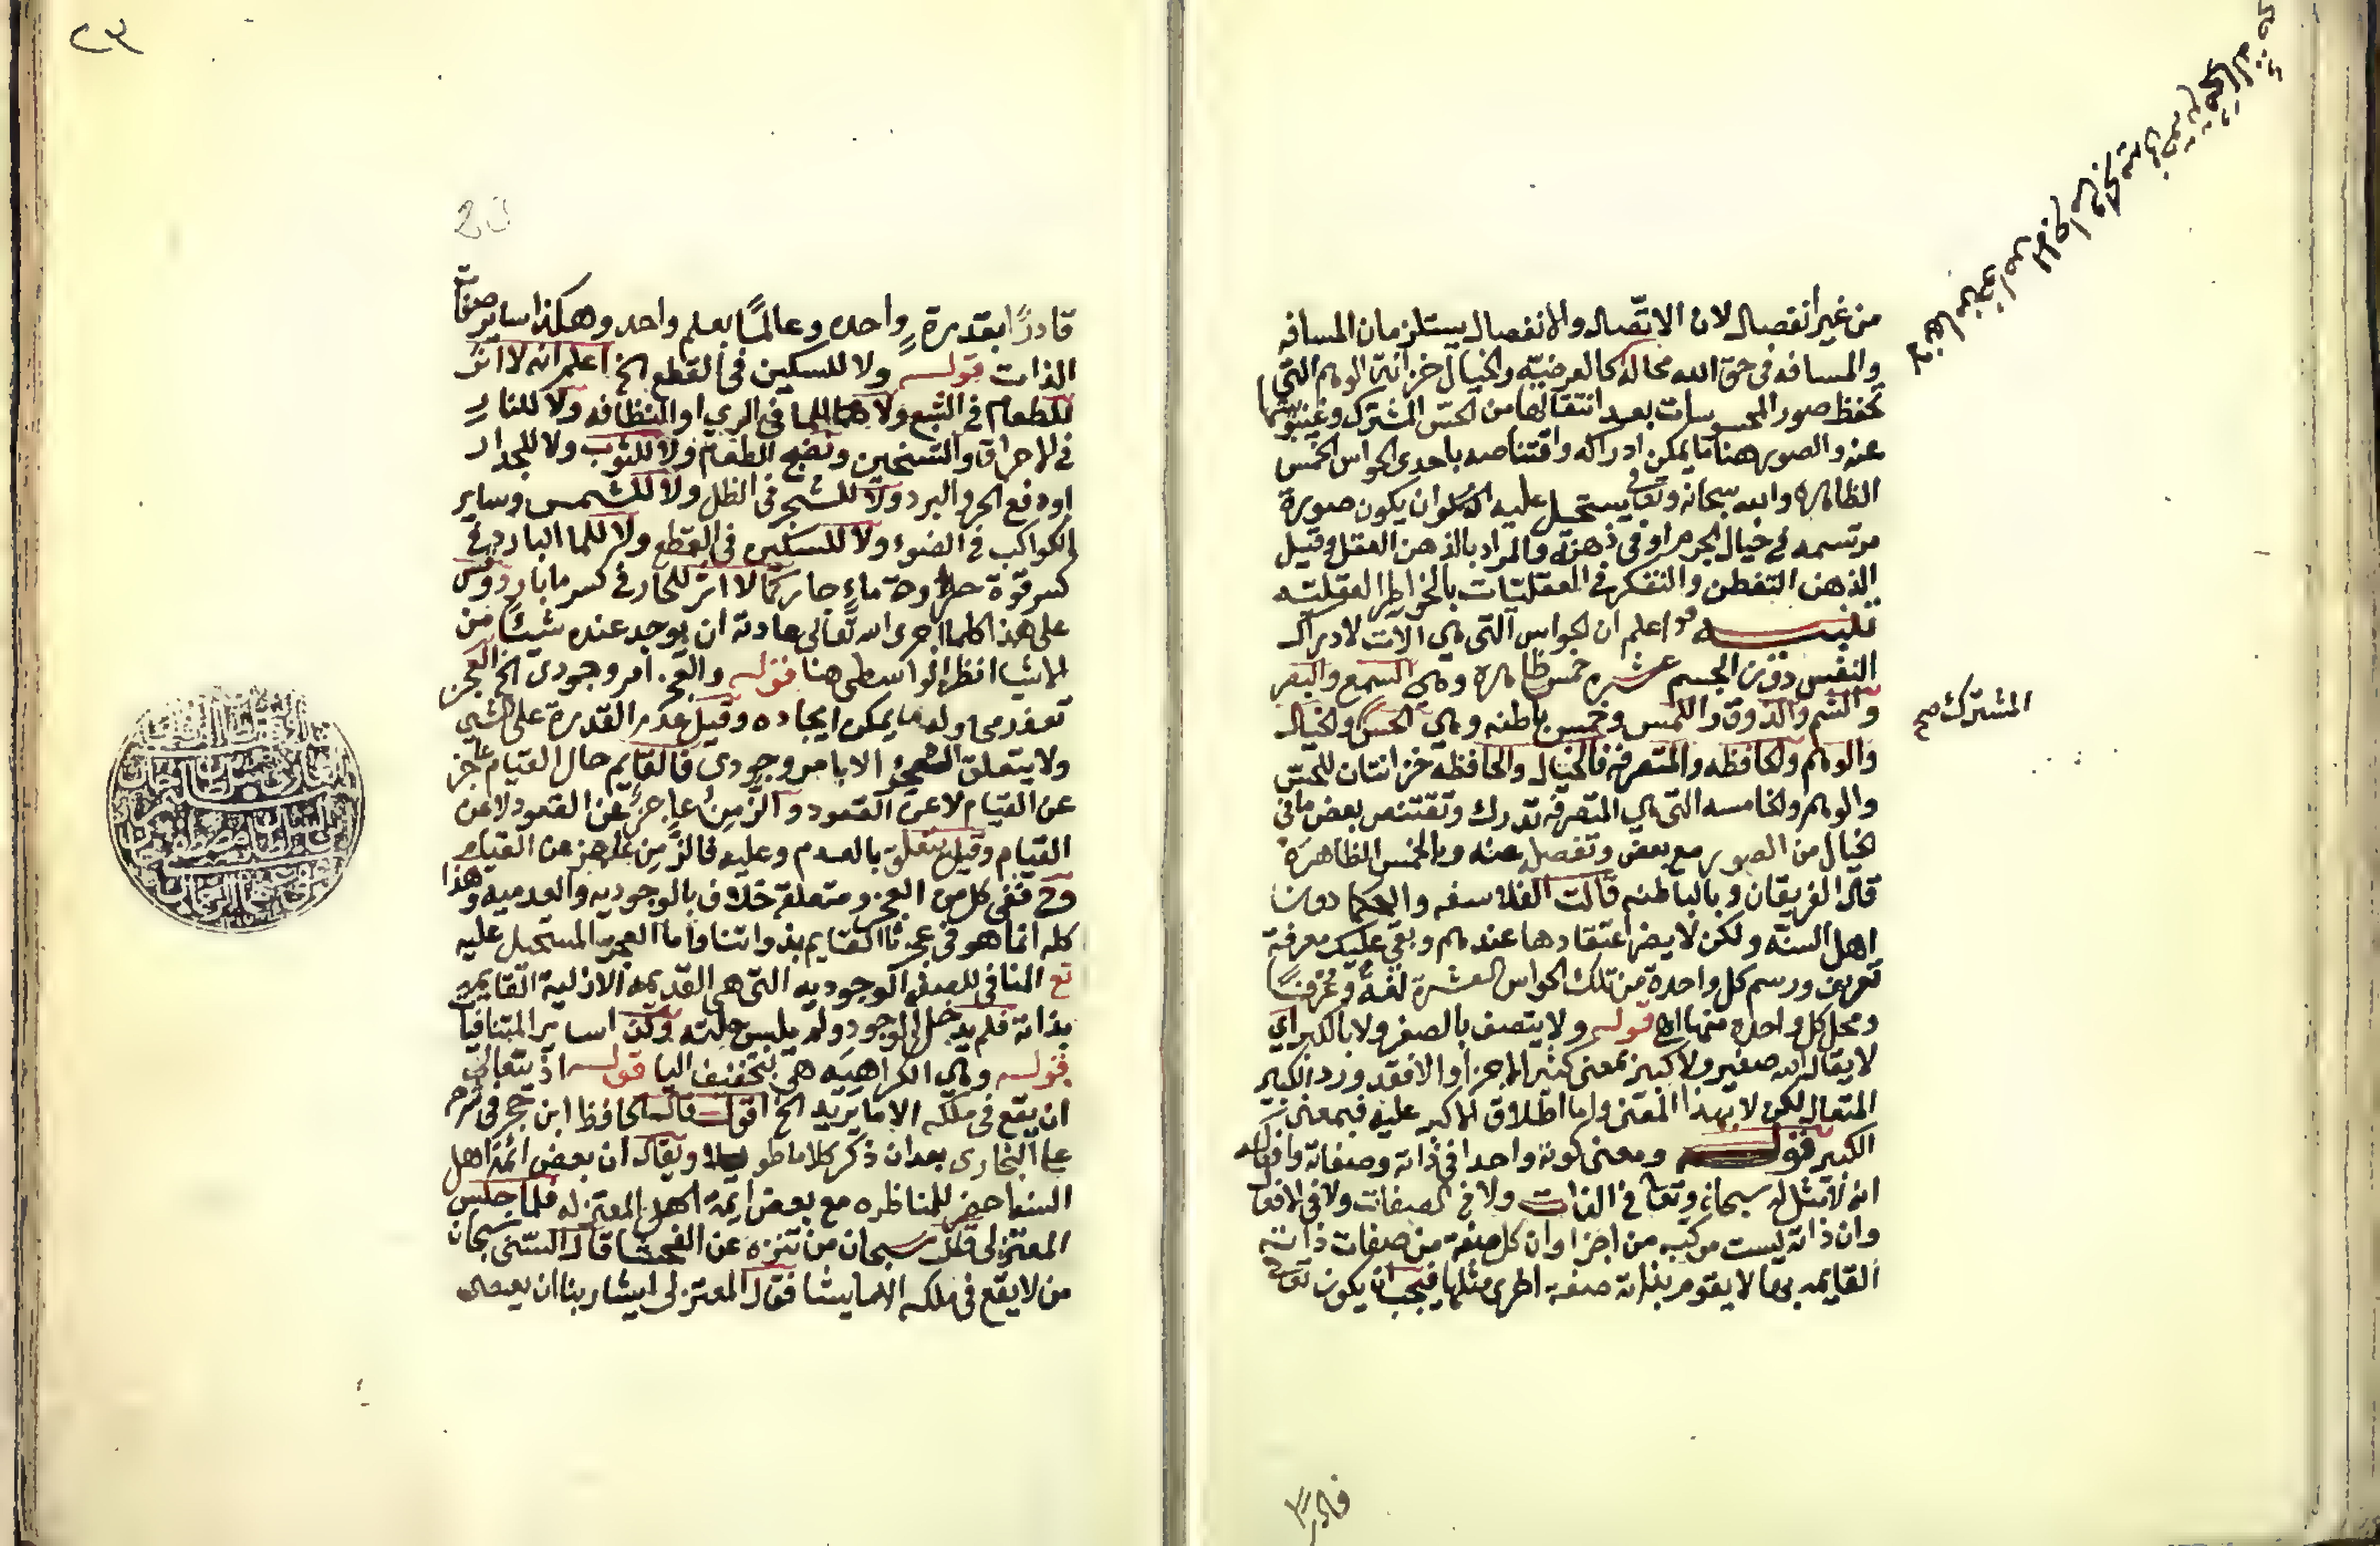 من غير انفصال لان الاتّصال والانفصال يستلزمان المسافه
والمسافه في حق الله محاله كالعرضيّه والخيال خزانة الوهم التي
تحفظ صور المحسوسات بعد انتقالها من الحسّ المشترك وغيبوبتها
عنه والصور هنا ما يمكن ادراكه واقتناصه باحدى الحواس الخمس
الظاهره والله سبحانه وتعا يستحيل عليه ان يكون صورة
مرتسمه في خيال الجرم او في ذهنه والمراد بالذهن العقل وقيل
الذهن التفطن والتفكر في العقليّات بالخواطر العقليّه
تنبيــه واعلم ان الحواس التي هي الات لادراك
النفس دون الجسم عشره خمس ظاهره وهي السمع والبصر
والشم والذوق واللمس وخمس باطنه وهي الحسّ والخيال
المشترك صح
والوهم والحافظه والمتصرفه فالخيال والحافظة خزانتان للحسّ
والوهم والخامسه التي هي المتصرفه تدرك وتقتنص بعض ما في
الخيال من الصور مع بعض وتفصله عنه وبالخمس الظاهرة
قال الفريقان وبالباطنه قالت الفلاسفه والحكما دون
اهل السنّة ولكن لا يضر اعتقادها عندهم وبقي عليك معرفة
تعريف ورسم كل واحدة من تلك الحواس العشرة لغةً وعُرفًا
ومحل كل واحدة منها قوله ولا يتصف بالصغر ولا بالكبر اي
لا يقال انه صغير ولا كبير بمعنى كثير الاجزا والا فقد ورد الكبير
المتعال لكن لا بهذا المعنى واما اطلاق الاكبر عليه فبمعنى
الكبير قوله ومعنى كونه واحدا في ذاته وصفاته وافعاله
انه لا مثل له سبحانه وتعا في الذات ولا في الصفات ولا في الافعا
وان ذاته ليست مركّبه من اجزا وان كل صفة من صفات ذاته
القايمه بها لا يقوم بذاته صفه اخرى مثلها فيجب ان يكون تعالى
قادرًا
٢٣
20
قادرًا بقدرةٍ واحده وعالمًا بعلم واحد وهكذا ساير صفات
الذات قوله ولا للسكين في القطع الخ اعلم انه لا اثر
للطعام في الشبع ولا للما في الري او النظافه ولا للنار
في الاحراق او التسخين ونضج الطعام ولا للثوب ولا للجدار
او دفع الحر والبرد ولا للشجر في الظل ولا للشمس وساير
الكواكب في الضوء ولا للسكين في القطع ولا للما البارد في
كسر قوة حراوة ماء حار كما لا اثر للحار في كسر ما بارد وقس
على هذا كلما اجرى الله تعالى عادته ان يوجد عنده شيئًا من
الاشيا انظر الواسطى هنا قوله والعجز امر وجودى الخ العجز
تعذر محاوله ما يمكن ايجاده وقيل عدم القدرة على الشي
ولا يتعلق العجز الا بامر وجودى فالقايم حال القيام عاجز
عن القيام لا عن القعود والزَّمِنُ عاجزٌ عن القعود لا عن
القيام وقيل يتعلق بالعدم وعليه فالزَّمِن عاجز عن القيام
وح ففي كل من العجز ومتعلقه خلاف بالوجوديه والعدميه وهذا
كله انما هو في عجزنا القايم بذواتنا واما العجز المستحيل عليه
تع المنافى للصفه الوجوديه التي هي القديمه الازلية القايمه
بذاته فلم يدخل الوجود ولم يلبس حلته وكذا ساير المتنافيا
قوله وهي الكراهيَه هي بتخفيف اليا قوله اذ يتعالى
ان يقع في ملكه الا ما يريد الخ اقول قال الحافظ ابن حجر في شرح
على البخارى بعد ان ذكر كلاما طويلا ويقال ان بعض ائمة اهل
السنه احضر للمناظره مع بعض ايمة اهل المعتزله فلما جلس
المعتزلى قال سبحان من تنزه عن الفحشا قال السّنى سبحان
من لا يقع في ملكه الا ما يشا فقال المعتزلى ايشا ربنا ان يعصى